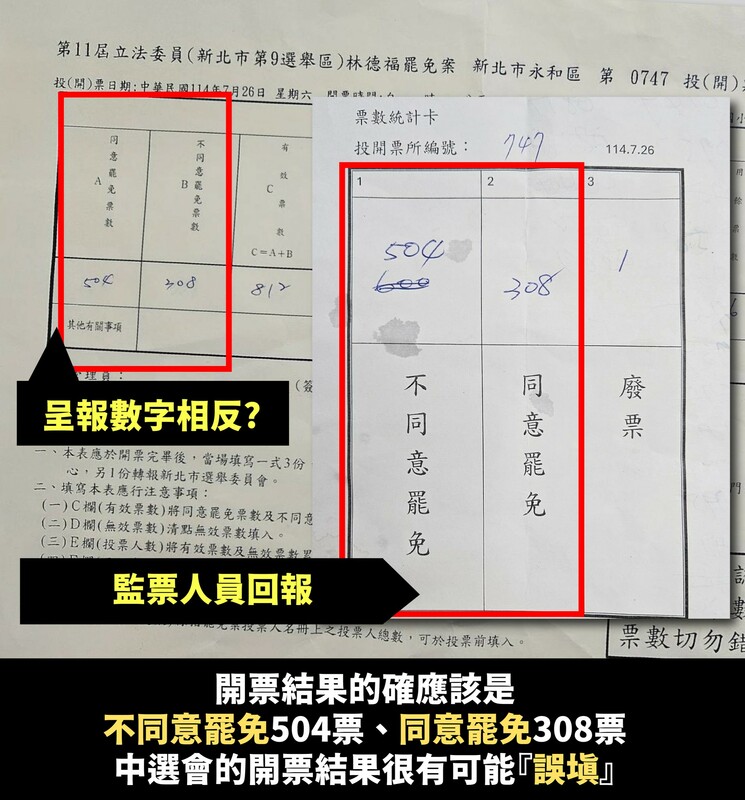 第11屆立法委員(新北市第9選舉區)林德福罷免案 新北市永和區 第 0747 投(開)
投(開)票日期:中華民國114年7月26日 星期六
同意罷免票數
A
不同意罷免票數
B
有效票數
C
C=A+B
504
308
812
其他有關事項
票數統計卡
投開票所編號：747
114.7.26
1
2
3
504
600
308
1
不同意罷免
同意罷免
廢票
呈報數字相反?
一、本表應於開票完畢後，當場填寫一式3份
心，另1份轉報新北市選舉委員會。
二、填寫本表應行注意事項：
(一)C欄(有效票數)將同意罷免票數及不同意
(二)D欄(無效票數)清點無效票數填入。
(三)E欄(投票人數)將有效票數及無效票數累
監票人員回報
罷免案投票人名冊上之投票人總數，可於投票前填入。
票數切勿錯
開票結果的確應該是
不同意罷免504票、同意罷免308票
中選會的開票結果很有可能『誤填』